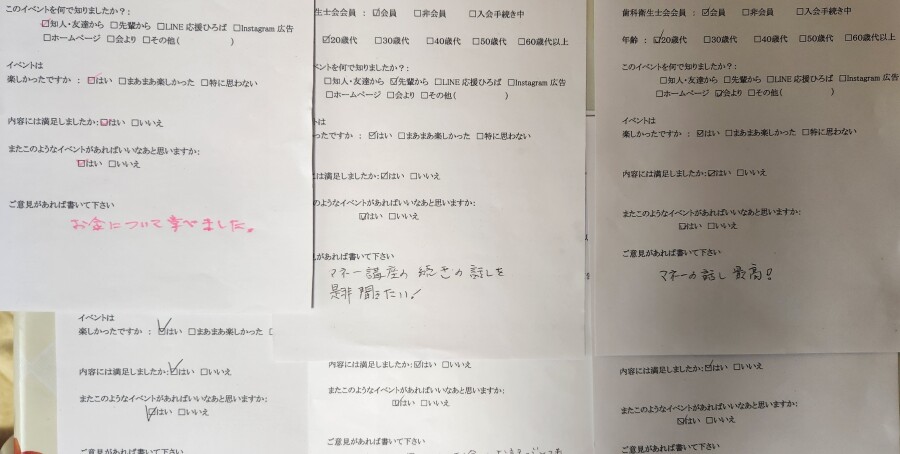 このイベントを何で知りましたか?:
☑知人・友達から □先輩から □LINE 応援ひろば □Instagram 広告
□ホームページ □会より □その他( )
イベントは
楽しかったですか : ☑はい □まあまあ楽しかった □特に思わない
内容には満足しましたか:☑はい □いいえ
またこのようなイベントがあればいいなあと思いますか:
☑はい □いいえ
ご意見があれば書いて下さい
お金について学べました。
衛生士会会員 : ☑会員 □非会員 □入会手続き中
☑20歳代 □30歳代 □40歳代 □50歳代 □60歳代以上
ベントを何で知りましたか?:
□知人・友達から ☑先輩から □LINE 応援ひろば □Instagram 広告
□ホームページ □会より □その他( )
トは
ったですか : ☑はい □まあまあ楽しかった □特に思わない
は満足しましたか:☑はい □いいえ
のようなイベントがあればいいなあと思いますか:
☑はい □いいえ
見があれば書いて下さい
マネー講座の続きの話しを
是非聞きたい!
歯科衛生士会会員 : ☑会員 □非会員 □入会手続き中
年齢 : ☑20歳代 □30歳代 □40歳代 □50歳代 □60歳代以上
このイベントを何で知りましたか?:
□知人・友達から □先輩から □LINE 応援ひろば □Instagram 広
□ホームページ ☑会より □その他( )
イベントは
楽しかったですか : ☑はい □まあまあ楽しかった □特に思わない
内容には満足しましたか:☑はい □いいえ
またこのようなイベントがあればいいなあと思いますか:
☑はい □いいえ
ご意見があれば書いて下さい
マネーの話し最高!!
イベントは
楽しかったですか : ☑はい □まあまあ楽しかった □
内容には満足しましたか:☑はい □いいえ
またこのようなイベントがあればいいなあと思いますか:
☑はい □いいえ
ご意見があれば書いて下さい
内容には満足しましたか:☑はい □いいえ
またこのようなイベントがあればいいなあと思いますか:
☑はい □いいえ
ご意見があれば書いて下さい
内容には満足しましたか:☑はい □いいえ
またこのようなイベントがあればいいなあと思いますか:
☑はい □いいえ
ご意見があれば書いて下さい